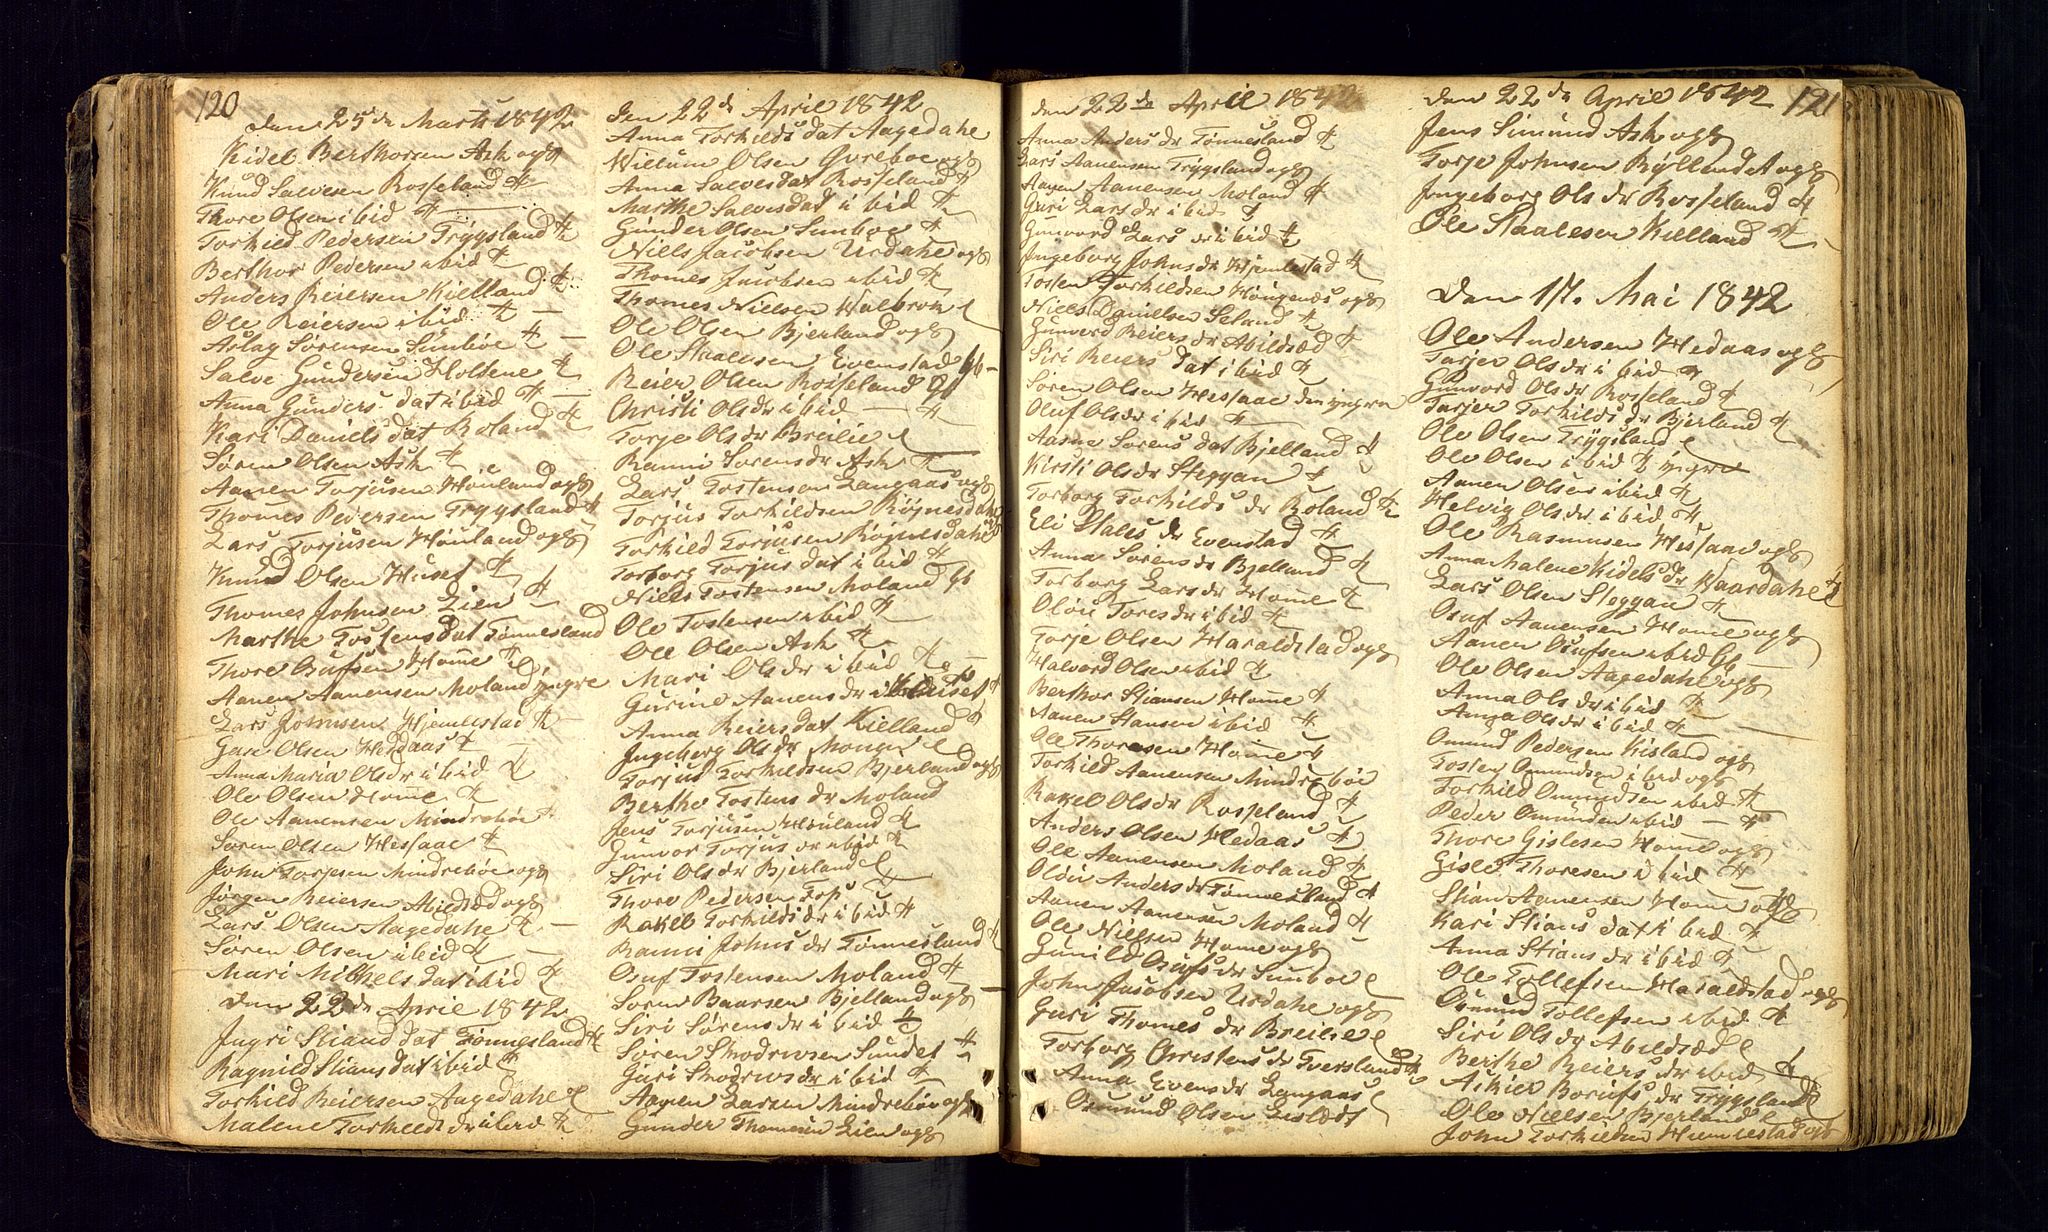 120
den 25de Marts 1842
Kidel Berthorsen Ask og g
Knud Salvesen Rosseland
Thore Olsen ibid
Torkild Pedersen Trygsland
Berthor Pedersen ibid
Anders Reiersen Kielland
Ole Reiersen ibid
Aslag Sørensen Simboe
Salve Gundersen Holtene
Anna Gunders dat ibid
Kari Daniels dat Roland
Søren Olsen Ask
Aanen Torjusen Houland og g
Thomes Pedersen Trygsland
Lars Torjusen Houland og g
Knud Olsen Huset
Thomes Johnsen Lien
Marthe Tostens dat Tønnesland
Thore Osufsen Home
Aanen Aanensen Moland yngre
Lars Johnsen Hjemlestad
Guri Olsen Hesdaas
Anna Maria Ols dr ibid
Ole Olsen Home
Ole Aanensen Mindrebøe
Søren Olsen Hessaae
John Torjesen Mindrebøe og g
Jørgen Reiersen Abildsæd og g
Lars Olsen Aagedahe
Søren Olsen ibid
Mari Mikkels dat ibid
den 22de April 1842
Ingri Stians dat Tønnesland
Ragnild Stians dat ibid
Torkild Reiersen Aagedahe
Malene Torkelds dr ibid
den 22de April 1842
Anna Torkilds dat Aagedahe
Willum Olsen Øvreboe og g
Anna Salves dat Rosseland
Marthe Salves dat ibid
Gunder Olsen Simboe
Niels Jacobsen Urdahe og g
Thomes Jacobsen ibid
Thomes Nielsen Walbrok
Ole Olsen Bjerland og g
Ole Staalesen Evenstad
Reier Olsen Rosseland
Christi Ols dr ibid
Torje Ols dr Breilie
Ranni Sorens dr Ask
Lars Tostensen Langaas og g
Torjus Torkildsen Røjnesdahe
Torkild Torjusen Røjnesdahe
Torborg Torjus dat ibid
Niels Tostensen Moland
Ole Tostensen ibid
Ole Olsen Ask
Mari Ols dr ibid
Gurine Aanens dr Huset
Anna Reiers dat Kielland
Ingeborg Ols dr Monen
Torjus Torkildsen Bjerland og g
Berthe Tostens dr Moland
Jens Torjusen Houland
Gunvor Torjus dr ibid
Siri Ols dr Bjerland
Thore Pedersen Fos
Rakel Torkilds dr ibid
Ranni Johns dr Tønnesland
Osuf Tostensen Moland
Søren Baarsen Bjelland og g
Siri Sørens dr ibid
Søren Skodevsen Sundet
Guri Skodevs dr ibid
Aanen Larsen Mindrebøe og g
Gunder Thomesen Lien og g
den 22de April 1842
Anna Anders dr Tønnesland
Lars Aanensen Trygsland og g
Aanen Aanensen Moland
Guri Lars dr ibid
Gunvord Lars dr ibid
Ingeborg Johns dr Hjemlestad
Tosten Torkildsen Hougenæs og g
Niels Danielsen Seland
Gunvord Reiers dr Abildsæd
Siri Reiers dat ibid
Søren Olsen Hessaae den yngre
Oluf Ols dr ibid
Aasne Sørens dat Bjelland
Kirsti Ols dr Steggan
Torborg Torkilds dr Roland
Eli Stales dr Evenstad
Anna Sørens dr Bjelland
Torborg Lars dr Home
Oløu Tores dr ibid
Torje Olsen Haraldstad og g
Halvord Olsen ibid
Berthor Stiansen Home
Aanen Stansen ibid
Ole Thoresen Home
Torkild Aanensen Mindrebøe
Rakel Ols dr Rosseland
Anders Olsen Hedaas
Ole Aanensen Moland
Oløu Anders dr Tønnesland
Aanen Aanensen Moland
Ole Nielsen Home og g
Gunild Osufs dr Simboe
John Jacobsen Urdahe og g
Guri Thomes dr Breilie
Torborg Christens dr Tversland
Anna Evens dr Langaas
Osmund Olsen
den 22de April 1842 121
Jens Simund Ask og g
Torje Johnsen Røllend og g
Ingeborg Ols dr Rosseland
Ole Staalesen Kielland
Den 17. Mai 1842
Ole Andersen Hedaas og g
Tarjer Ols dr ibid
Gunvord Ols dr Rosseland
Tarjer Torkilds dr Bjerland
Ole Olsen Trygsland
Ole Olsen ibid yngre
Aanen Olsen ibid
Helvig Ols dr ibid
Ole Rasmusen Hessaae og g
Anna Malene Kidels dr Haardahe
Lars Olsen Steggan
Osuf Aanensen Home og g
Aanen Osufsen ibid
Ole Olsen Aagedahe og g
Anna Ols dr ibid
Anna Ols dr ibid
Omund Pedersen Kisland og g
Tosten Omundsen ibid og g
Torkild Omundsen ibid
Peder Omundsen ibid
Thore Gislesen Home og g
Gisle Thoresen ibid
Stian Aanensen Home og g
Kari Stians dat ibid
Anna Stians dr ibid
Ole Tollefsen Haraldstad og g
Osmund Tollefsen ibid
Siri Ols dr Abildsæd
Berthe Reiers dr ibid
Askier Borufs dr Trygsland
Ole Nielsen Bjerland
John Torkildsen Hiemlestad og g